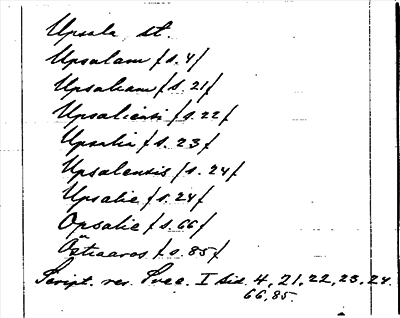 Upsala, st.
Upsalam /s. 4/
Upsaliam /s. 21/
Upsaliensi /s. 22/
Upsalia /s. 23/
Upsalensis /s. 24/
Upsalie /s. 24/
Opsalie /s. 66/
Östraaros /s. 85/
Script. rer. Svec. I sid. 4, 21, 22, 23, 24.
66, 85